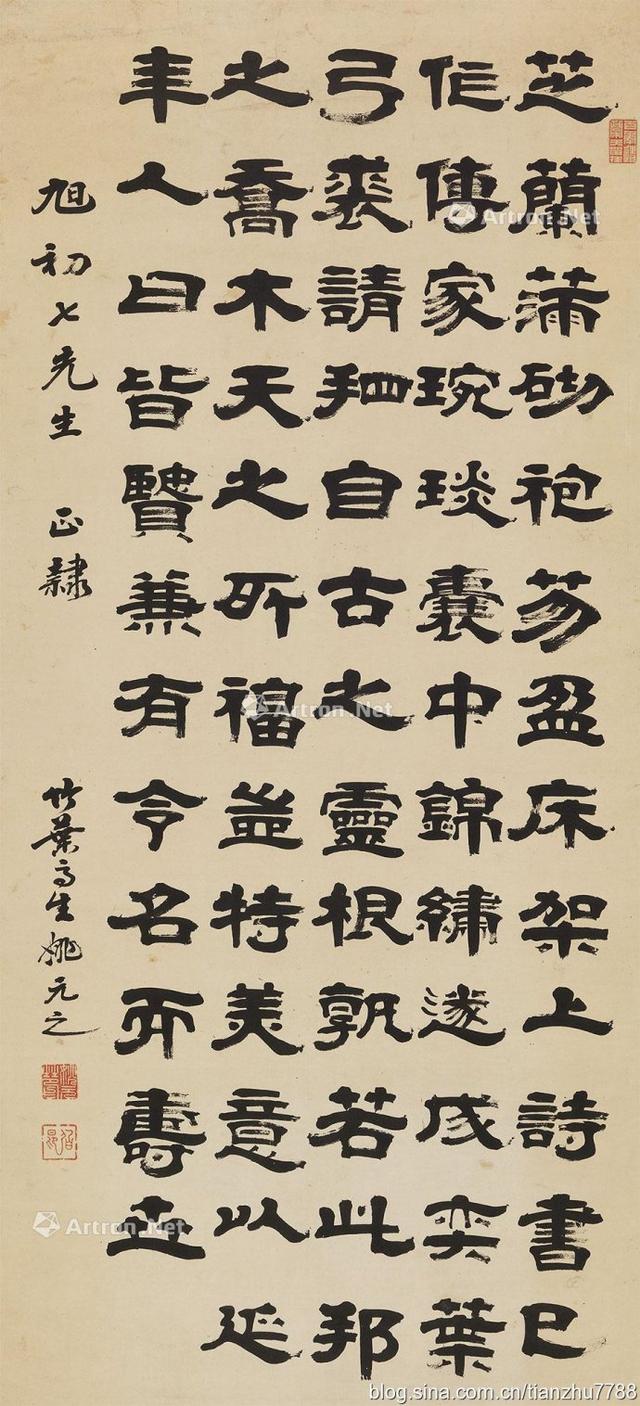 芝蘭滿砌袍笏盈床架上詩書已
作傳家琬琰囊中錦繡遂成奕葉
弓裘請矧自古之靈根孰若此邦
之喬木天之所福豈特美意以延
年人曰皆賢兼有令名而壽並
旭初七先生 正隸
竹葉亭生姚元之
Artron.Net
Artron.Net
Artron.Net
blog.sina.com.cn/tianzhu7788